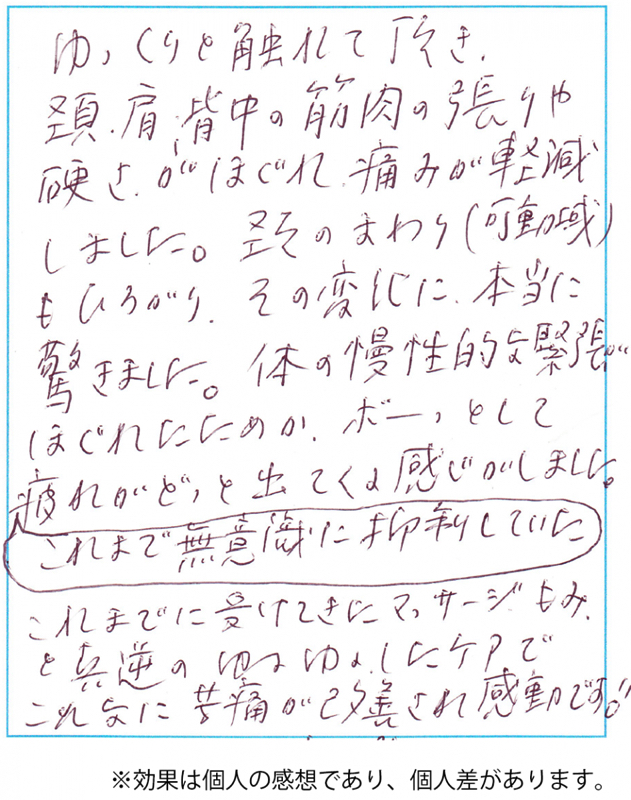 ゆっくりと触れて頂き、
頚、肩、背中の筋肉の張りや
硬さがほぐれ、痛みが軽減
しました。頚のまわり(可動域)
もひろがり、その変化に、本当に
驚きました。体の慢性的な緊張が
ほぐれたためか、ボーっとして
疲れがどっと出てくる感じがしました。
これまで無意識に抑制していた
これまでに受けてきたマッサージ、もみ、
と真逆のゆるゆるしたケアで
これなに苦痛が改善され感動です!!
※効果は個人の感想であり、個人差があります。